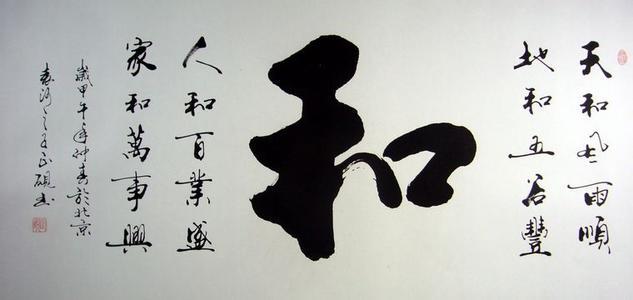 天和风雨順
地和五谷豐
和
人和百業盛
家和萬事興
歲甲午年仲春於北京
硯書